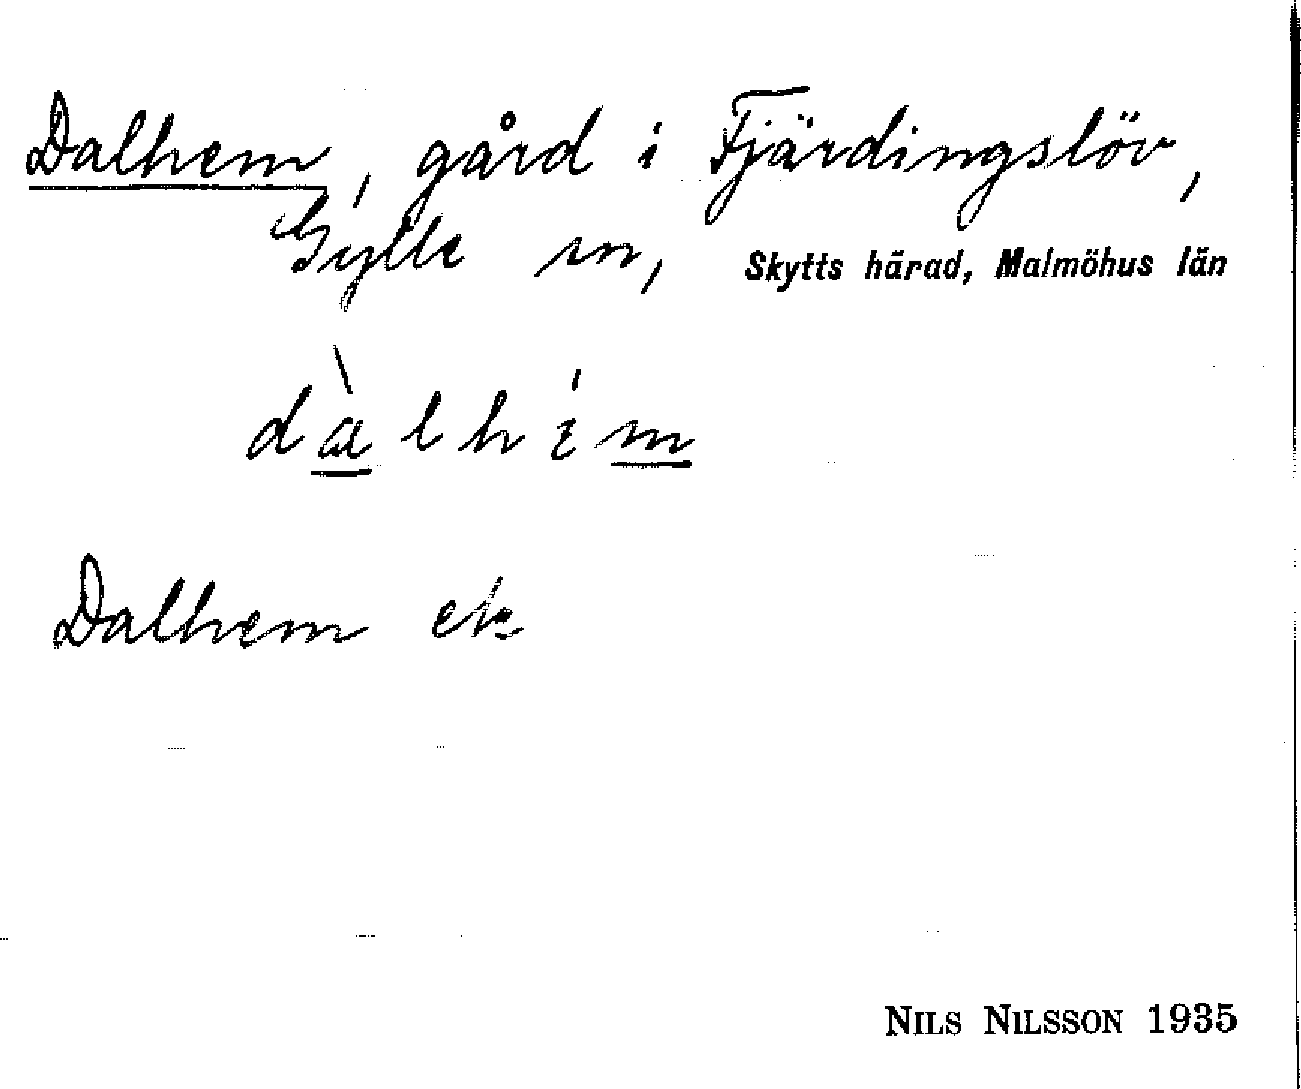 Dalhem, gård i Fjärdingslöv,
Gylle sn, Skytts härad, Malmöhus län
dàlhém
Dalhem ek
NILS NILSSON 1935